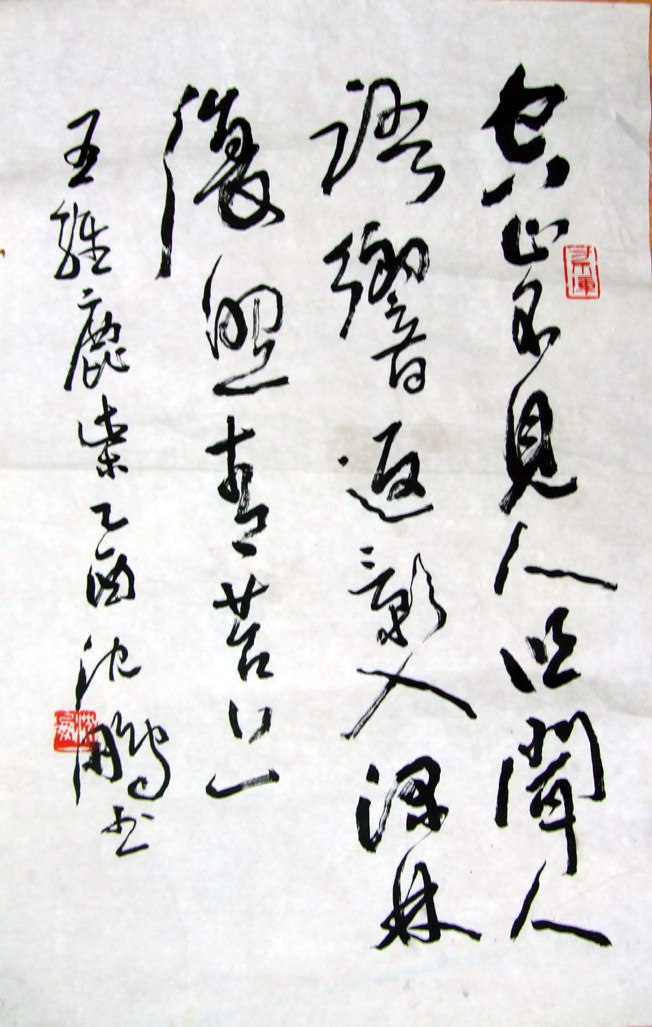 空山不見人但聞人
語響返影入深林
復照青苔上
王維鹿柴乙酉沈鵬书